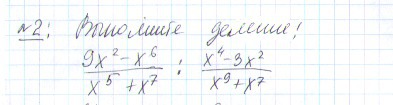 №2: Выполните деление!
(9x² - x⁶)/(x⁵ + x⁷) : (x⁴ - 3x²)/(x⁹ + x⁷)